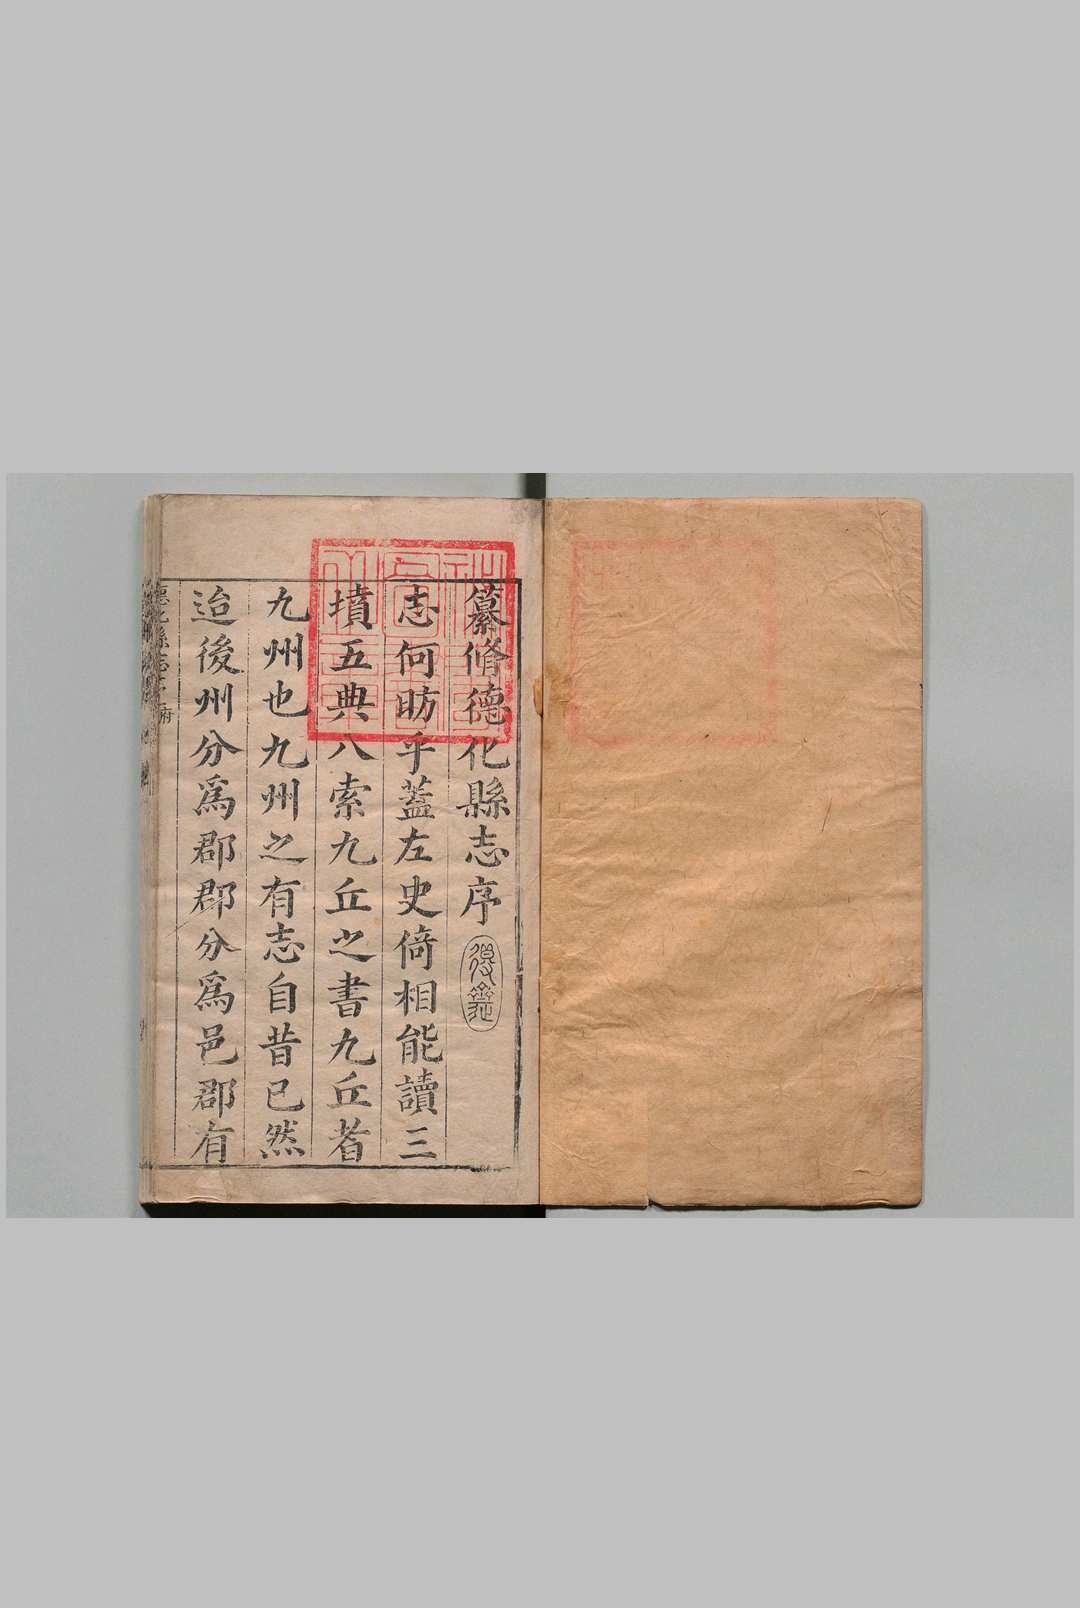 纂脩德化縣志序
志何昉乎蓋左史倚相能讀三
墳五典八索九丘之書九丘者
九州也九州之有志自昔已然
迨後州分爲郡郡分爲邑郡有
德化縣志